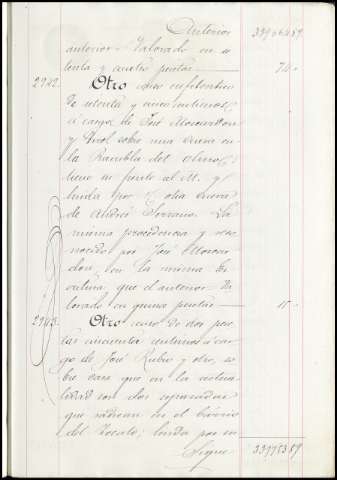 Anterior 33966489
anterior. Valorado en se
tenta y cuatro pesetas 74
2942. Otro censo enfitentico
de setenta y cinco centimos
á cargo de José
y sobre una cueva en
la Rambla del
tiene su puerta al M. y
linda por otra cueva
de Andrés Serrano. La
misma procedencia y reco
nocido por José
en la misma Es
critura que el anterior Va
lorado en quince pesetas 15
2943. Otro censo de dos pese
tas cincuenta centimos á car
go de José Rubio y otro, so
bre casa que en la actua
lidad son dos separadas
que radican en el
del linda por su
Sigue 33975389